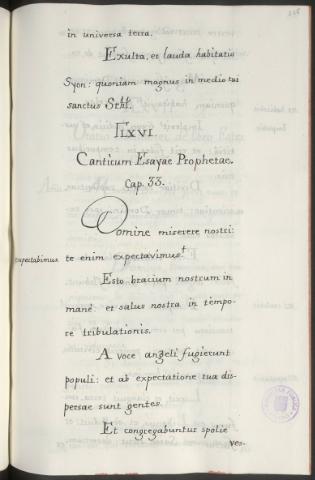 in universa terra.
Exulta, et lauda habitatio
Syon: quoniam magnus in medio tui
sanctus Srhl.
LXVI
Canticum Esayae Prophetae.
Cap. 33.
Domine miserere nostri:
te enim expectavimus†
expectabimus
Esto bracium nostrum in
mane et salus nostra in tempo-
re tribulationis.
A voce angeli fugierunt
populi: et ab expectatione tua dis-
persae sunt gentes.
Et congregabuntur spolie
ves-